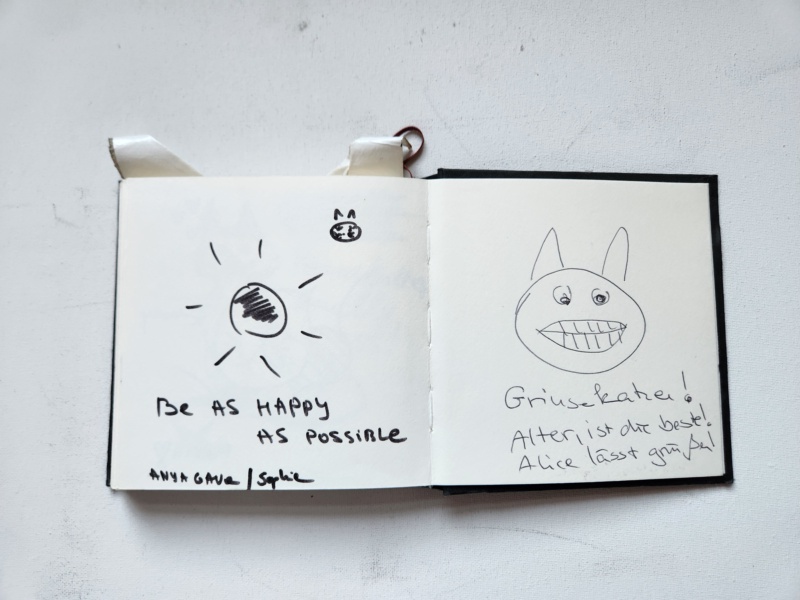 Be AS HAPPY
AS POSSIBLE
ANYA / Sophie
Grinsekatze!
Alter, ist die beste!
Alice lässt grüßen!